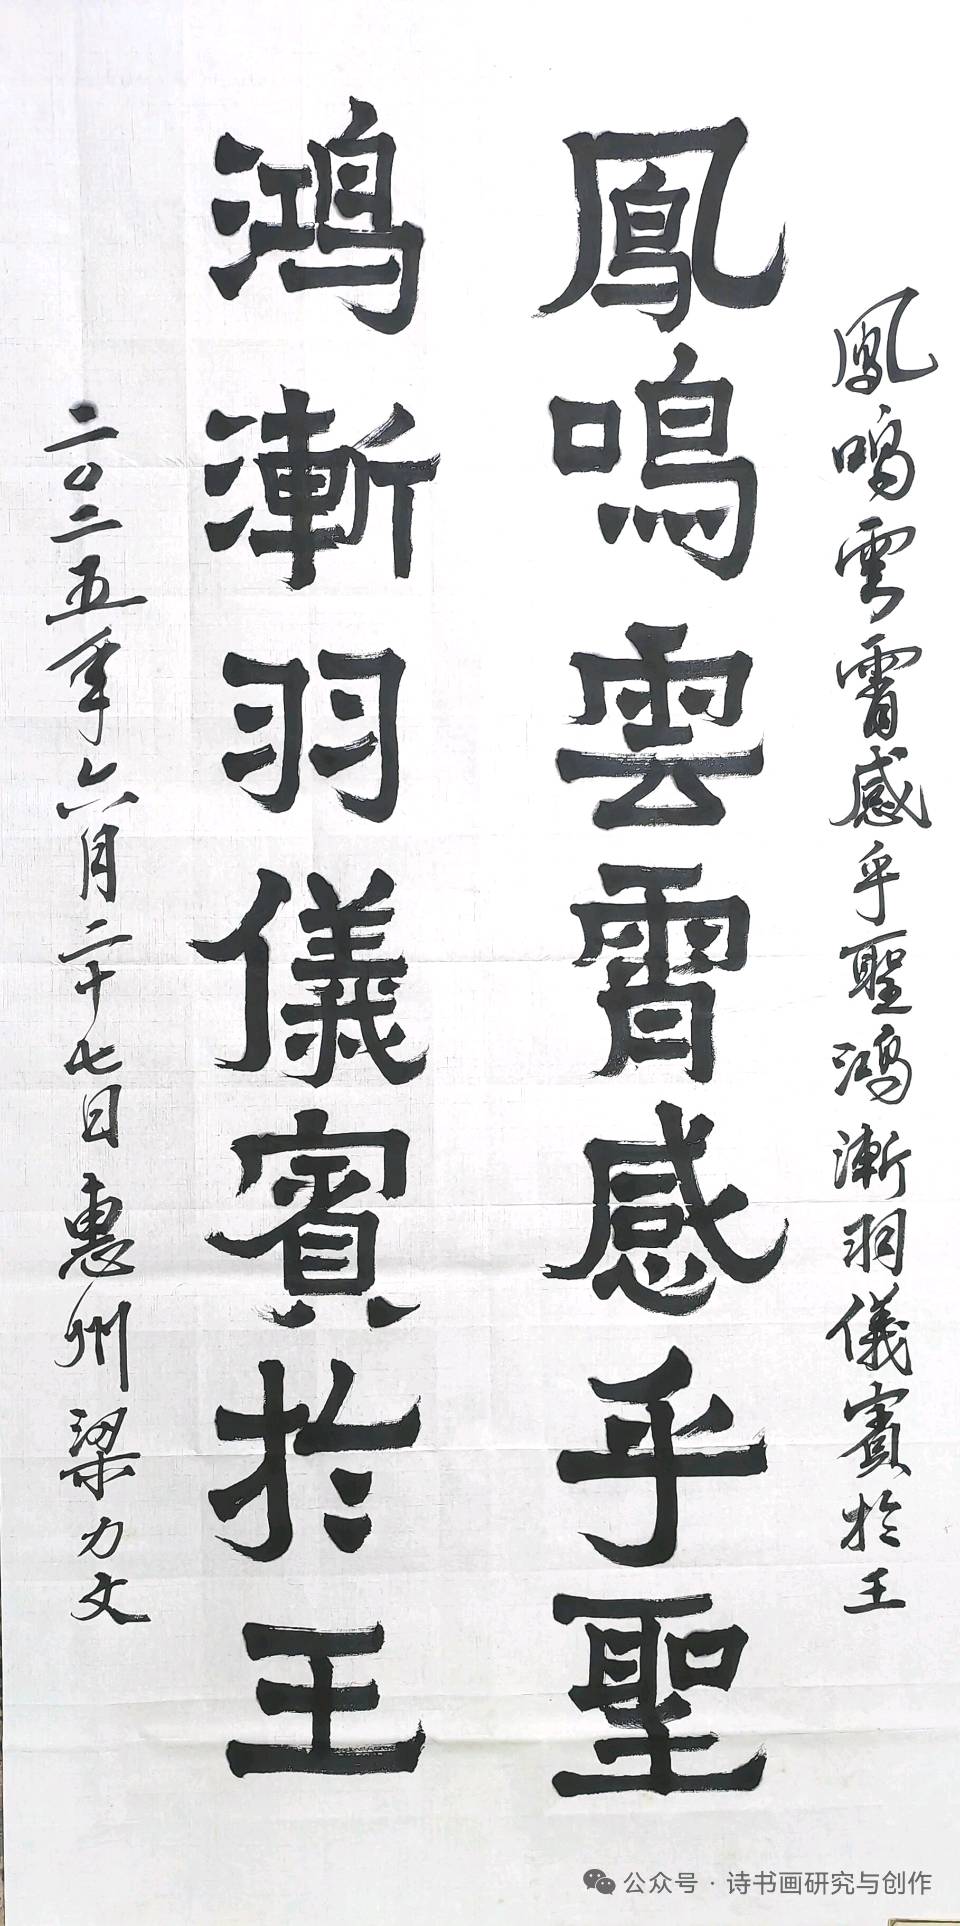 鳳鳴雲霄感乎聖鴻漸羽儀賓於王
鳳鳴雲霄感乎聖
鴻漸羽儀賓於王
二〇二五年六月二十七日惠州梁力文
公众号·诗书画研究与创作